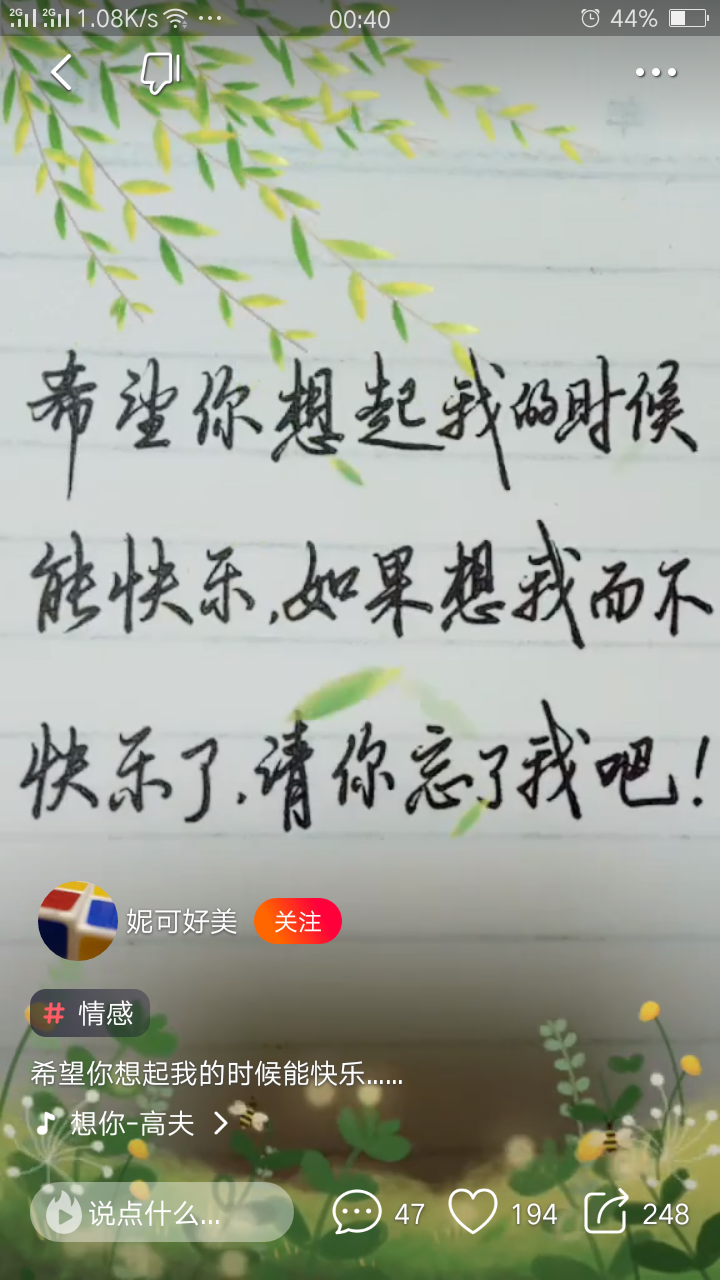 2G 2G 1.08K/s 00:40 44%
希望你想起我的时候
能快乐,如果想我而不
快乐了,请你忘了我吧!
妮可好美 关注
# 情感
希望你想起我的时候能快乐……
想你-高夫
说点什么... 47 194 248